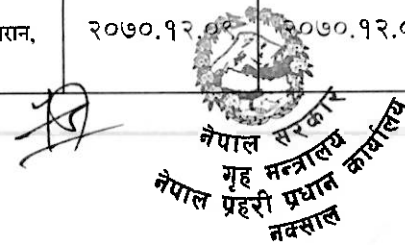 रान, २०७०.१२.०९ २०७०.१२.०
नेपाल सरकार
गृह मन्त्रालय
नेपाल प्रहरी प्रधान कार्यालय
नक्साल